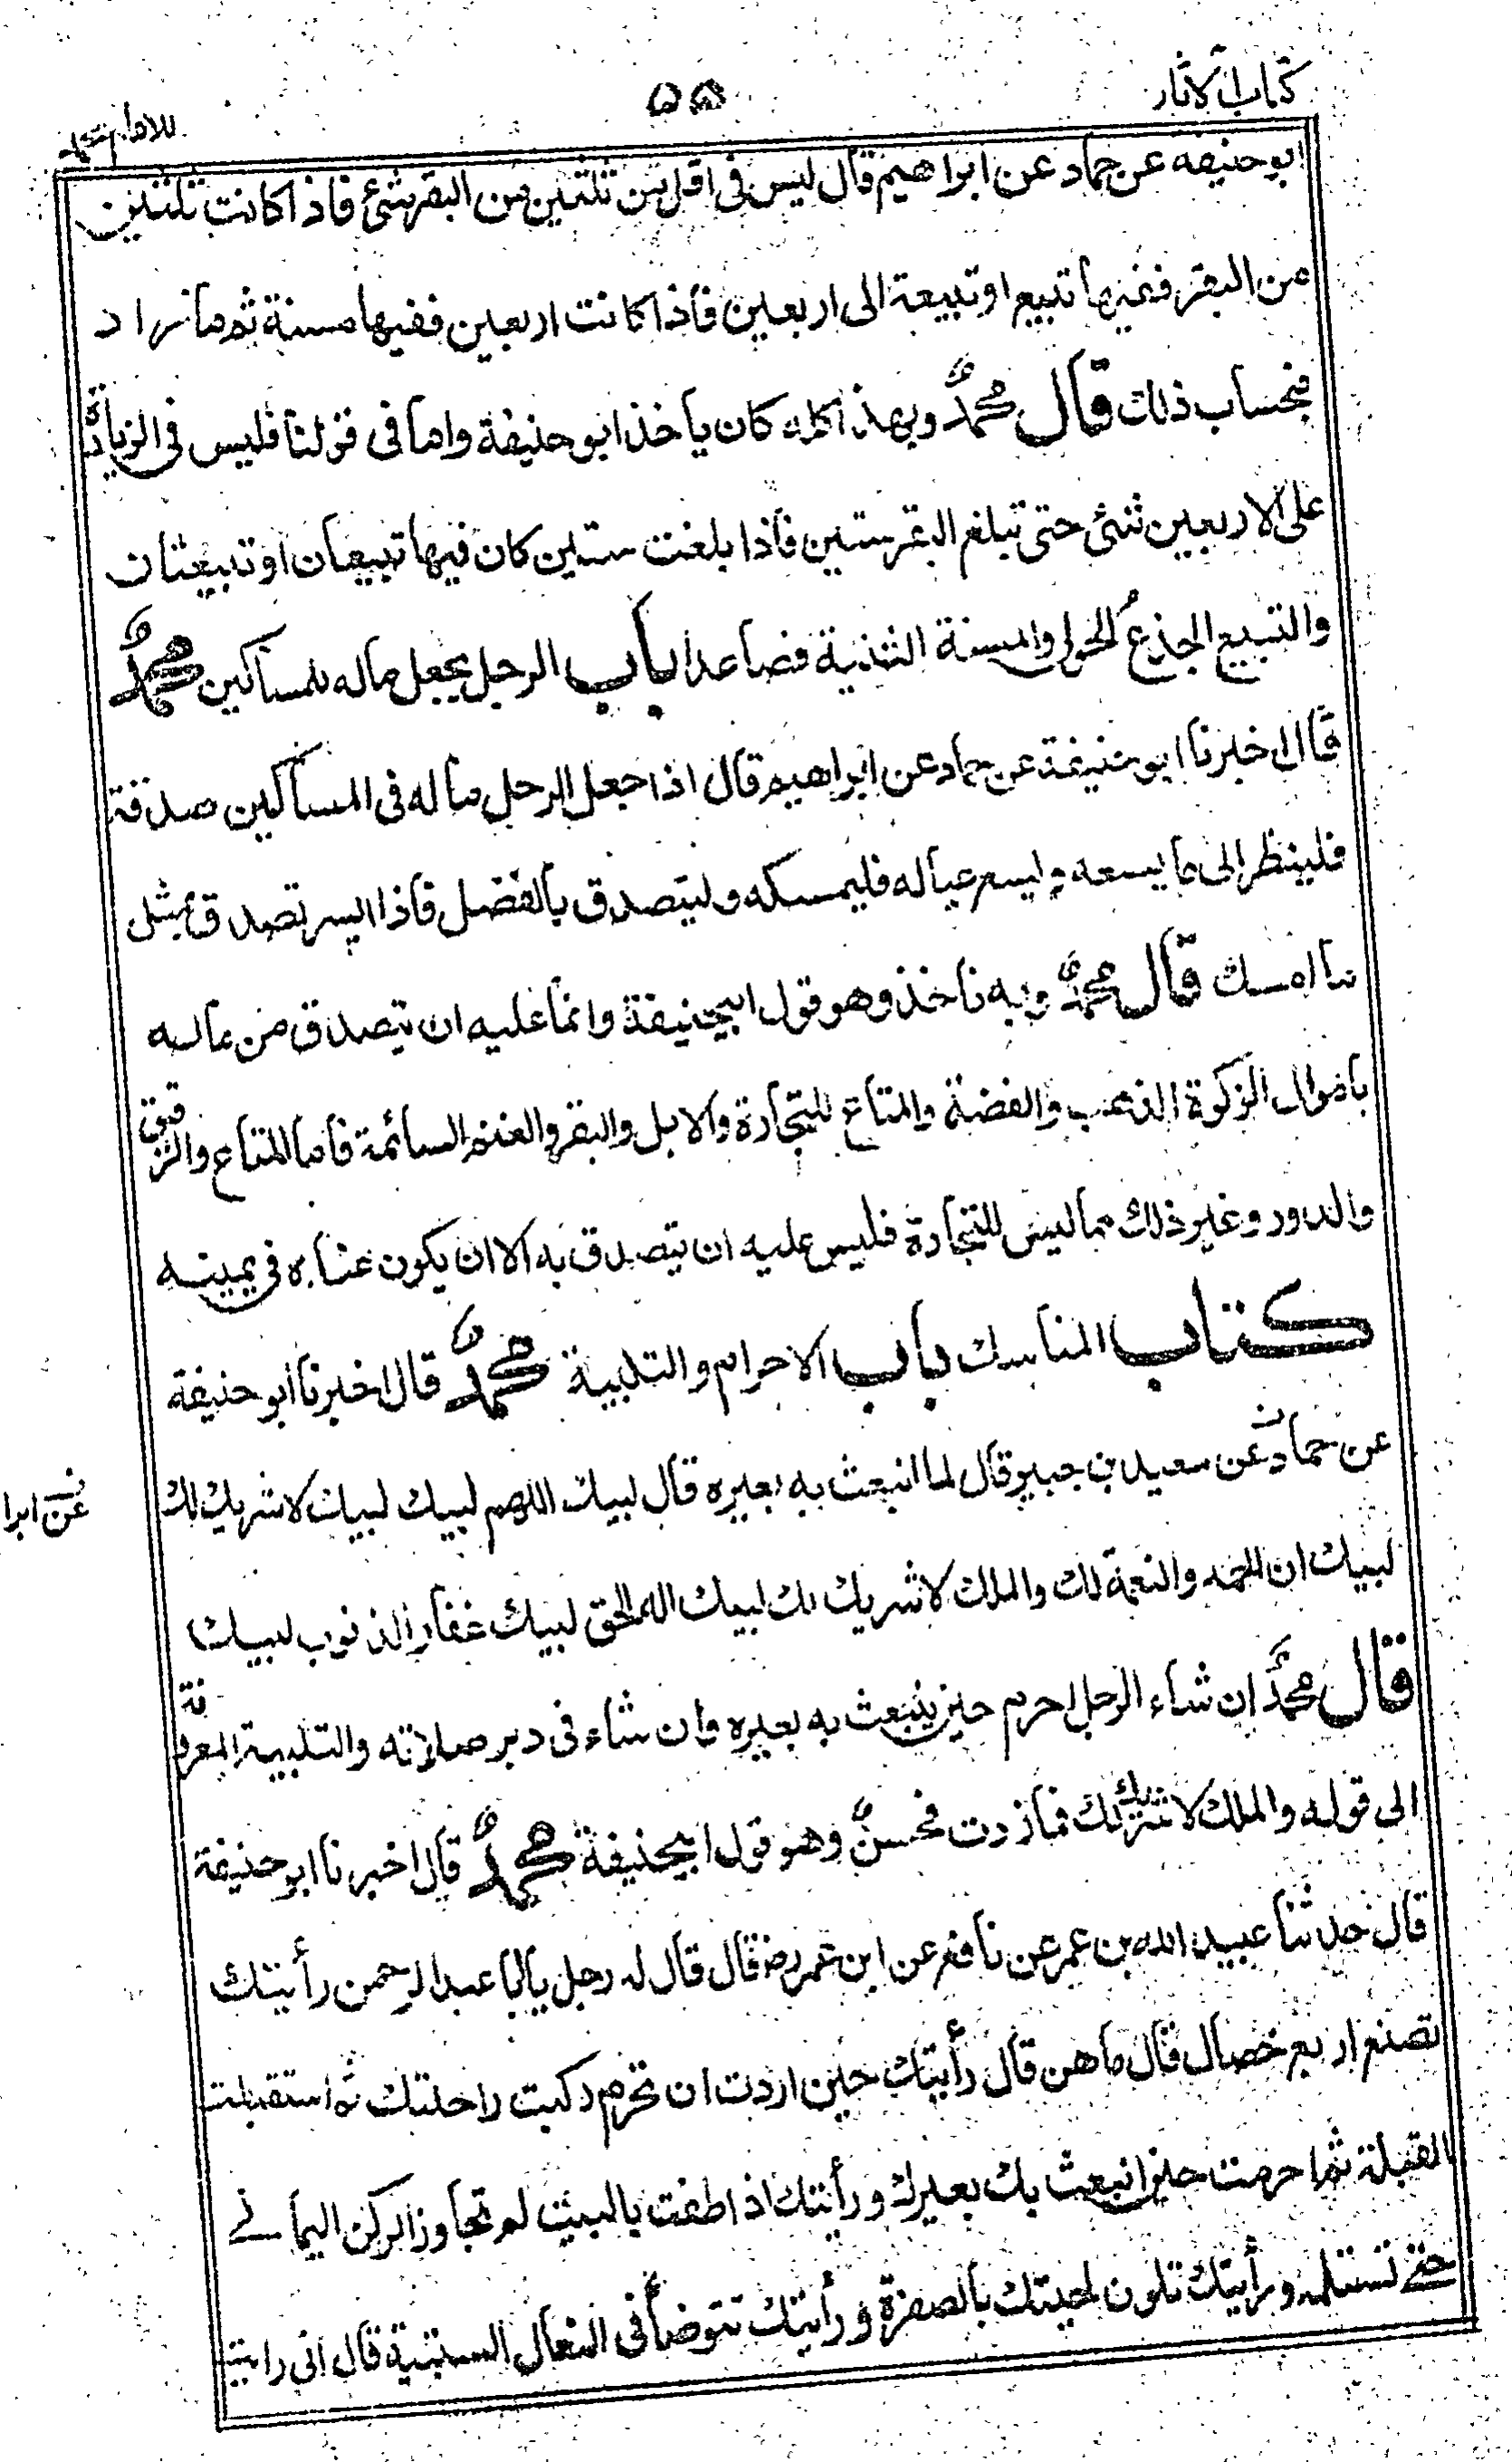 كتاب الآثار
٥٥
للامام محمد
ابو حنيفه عن حماد عن ابراهيم قال ليس فى اقل من ثلثين من البقر شئ فاذا كانت ثلثين
من البقر ففيها تبيع او تبيعة الى اربعين فاذا كانت اربعين ففيها مسنة ثم ما زاد
فبحساب ذلك قال محمدؒ وبهذا كله كان يأخذ ابو حنيفة واما فى قولنا فليس فى الزيادة
على الاربعين شئ حتى تبلغ البقر ستين فاذا بلغت ستين كان فيها تبيعان او تبيعتان
والتبيع الجذع الحولى والمسنة الثنية فصاعدا باب الرجل يجعل ماله للمساكين محمدؒ
قال اخبرنا ابو حنيفة عن حماد عن ابراهيم قال اذا جعل الرجل ماله فى المساكين صدقة
فلينظر الى ما يسعه ويسع عياله فليمسكه وليتصدق بالفضل فاذا ايسر تصدق بمثل
ما امسك قال محمدؒ وبه ناخذ وهو قول ابيحنيفة وانما عليه ان يتصدق من ماله
باموال الزكوة الذهب والفضة والمتاع للتجارة والابل والبقر والغنم السائمة فاما المتاع والرقيق
والدور وغير ذلك مما ليس للتجارة فليس عليه ان يتصدق به الا ان يكون عناه فى يمينه
كتاب المناسك باب الاحرام والتلبية محمدؒ قال اخبرنا ابو حنيفة
عن حماد عن سعيد بن جبير قال لما انبعث به بعيره قال لبيك اللهم لبيك لبيك لا شريك لك
عن ابرا
لبيك ان الحمد والنعمة لك والملك لا شريك لك لبيك اله الحق لبيك غفار الذنوب لبيك
قال محمدؒ ان شاء الرجل احرم حين ينبعث به بعيره وان شاء فى دبر صلاته والتلبية المعروفة
الى قوله والملك لا شريك لك فما زدت فحسن وهو قول ابيحنيفة محمدؒ قال اخبرنا ابو حنيفة
قال حدثنا عبيد الله بن عمر عن نافع عن ابن عمر رض قال قال له رجل يا ابا عبد الرحمن رأيتك
تصنع اربع خصال قال ما هن قال رأيتك حين اردت ان تحرم ركبت راحلتك ثم استقبلت
القبلة ثم احرمت حين انبعث بك بعيرك ورأيتك اذا طفت بالبيت لم تجاوز الركن اليمانے
حتے تستلمه ورأيتك تلون لحيتك بالصفرة ورأيتك تتوضأ فى النعال السبتية قال انى رايت